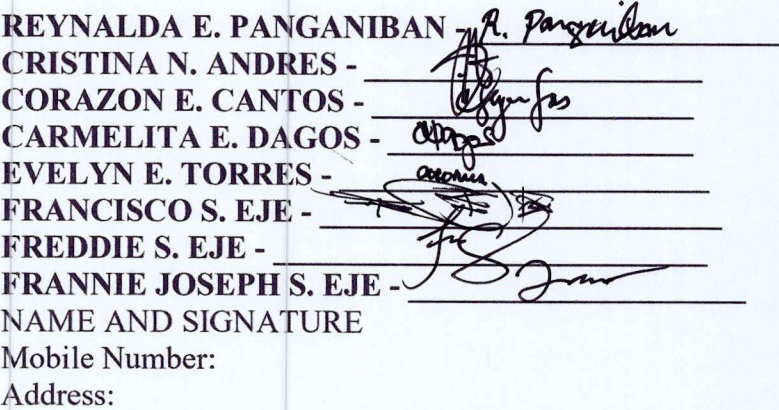 REYNALDA E. PANGANIBAN - R. Panganiban
CRISTINA N. ANDRES -
CORAZON E. CANTOS -
CARMELITA E. DAGOS -
EVELYN E. TORRES -
FRANCISCO S. EJE -
FREDDIE S. EJE -
FRANNIE JOSEPH S. EJE -
NAME AND SIGNATURE
Mobile Number:
Address: